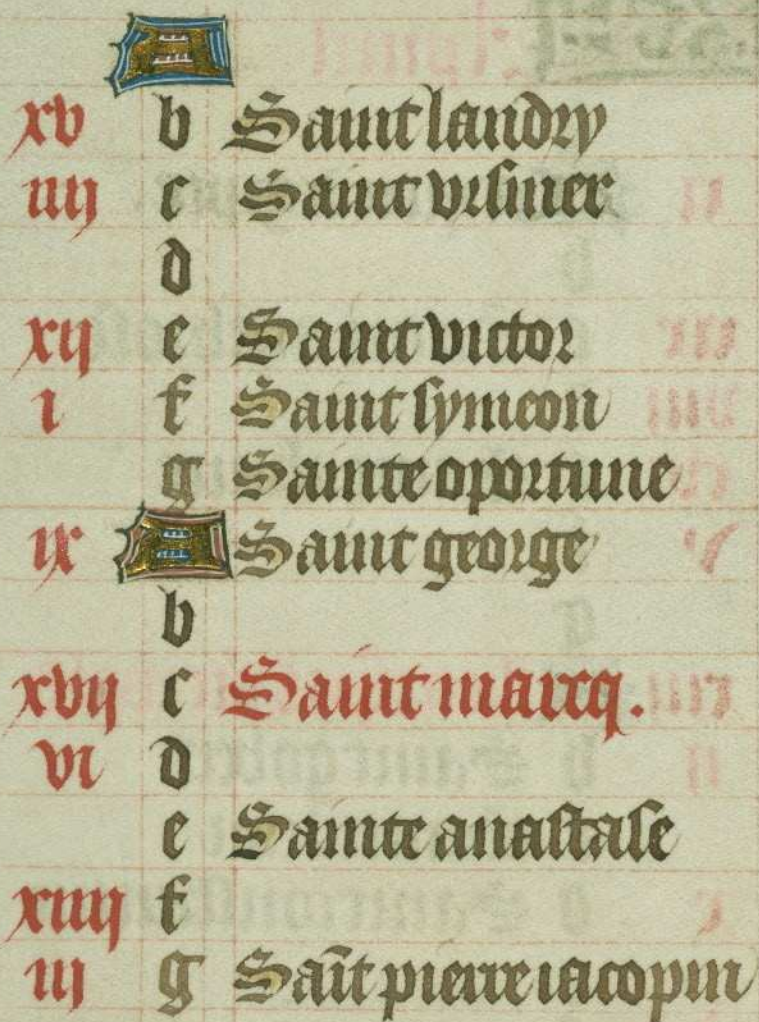 A
xv b Saint landry
iiij c Saint vrsmer
d
xij e Saint victor
i f Saint symeon
g Sainte oportune
ix A Saint george
b
xvij c Saint marcq.
vi d
e Sainte anastase
xiiij f
iij g Sait̄ pierre iacopin